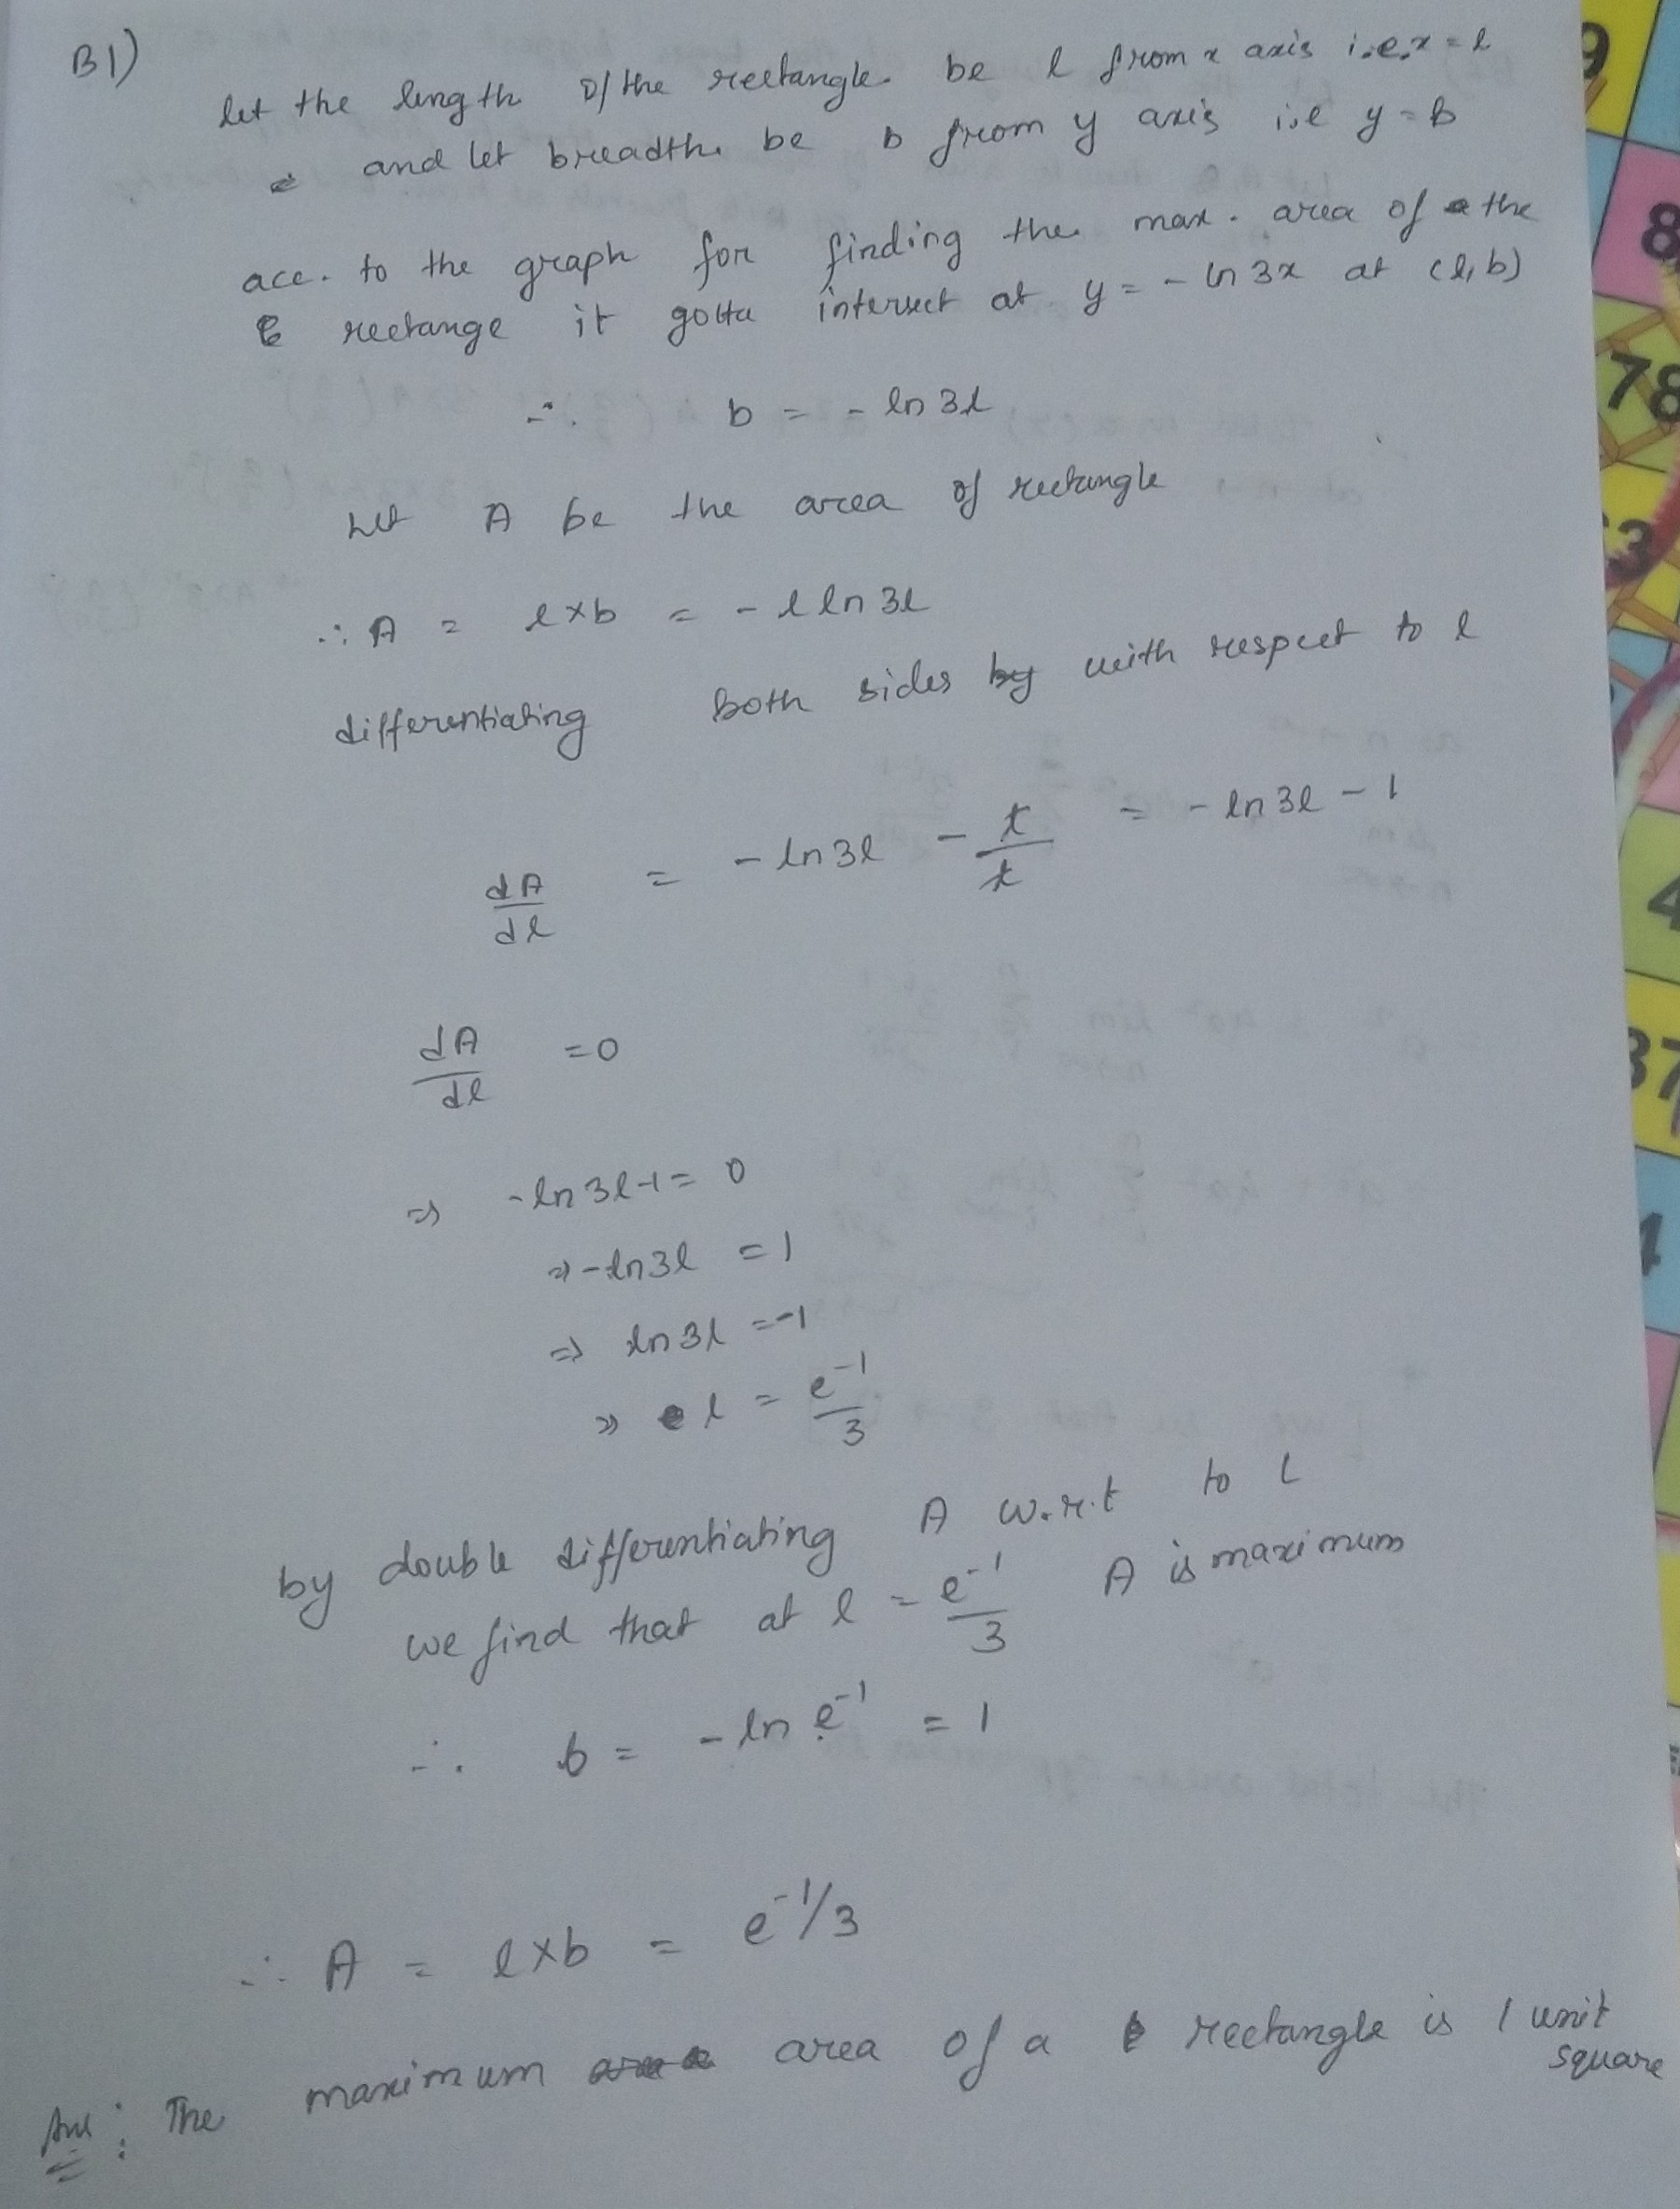 B1)
let the length of the rectangle be l from x axis i.e. x = l
and let breadth be b from y axis i.e y = b
acc. to the graph for finding the max. area of the
rectange it gotta intersect at y = - ln 3x at (l, b)
∴ b = - ln 3l
Let A be the area of rectangle
∴ A = l x b = - l ln 3l
differentiating both sides by with respect to l
dA/dl = - ln 3l - l/l = - ln 3l - 1
dA/dl = 0
=> - ln 3l - 1 = 0
=> - ln 3l = 1
=> ln 3l = -1
=> l = e^-1/3
by double differentiating A w.r.t to l
we find that at l = e^-1/3 A is maximum
∴ b = - ln e^-1 = 1
∴ A = l x b = e^-1/3
Ans: The maximum area of a rectangle is 1 unit
square
9
8
78
3
4
37
4